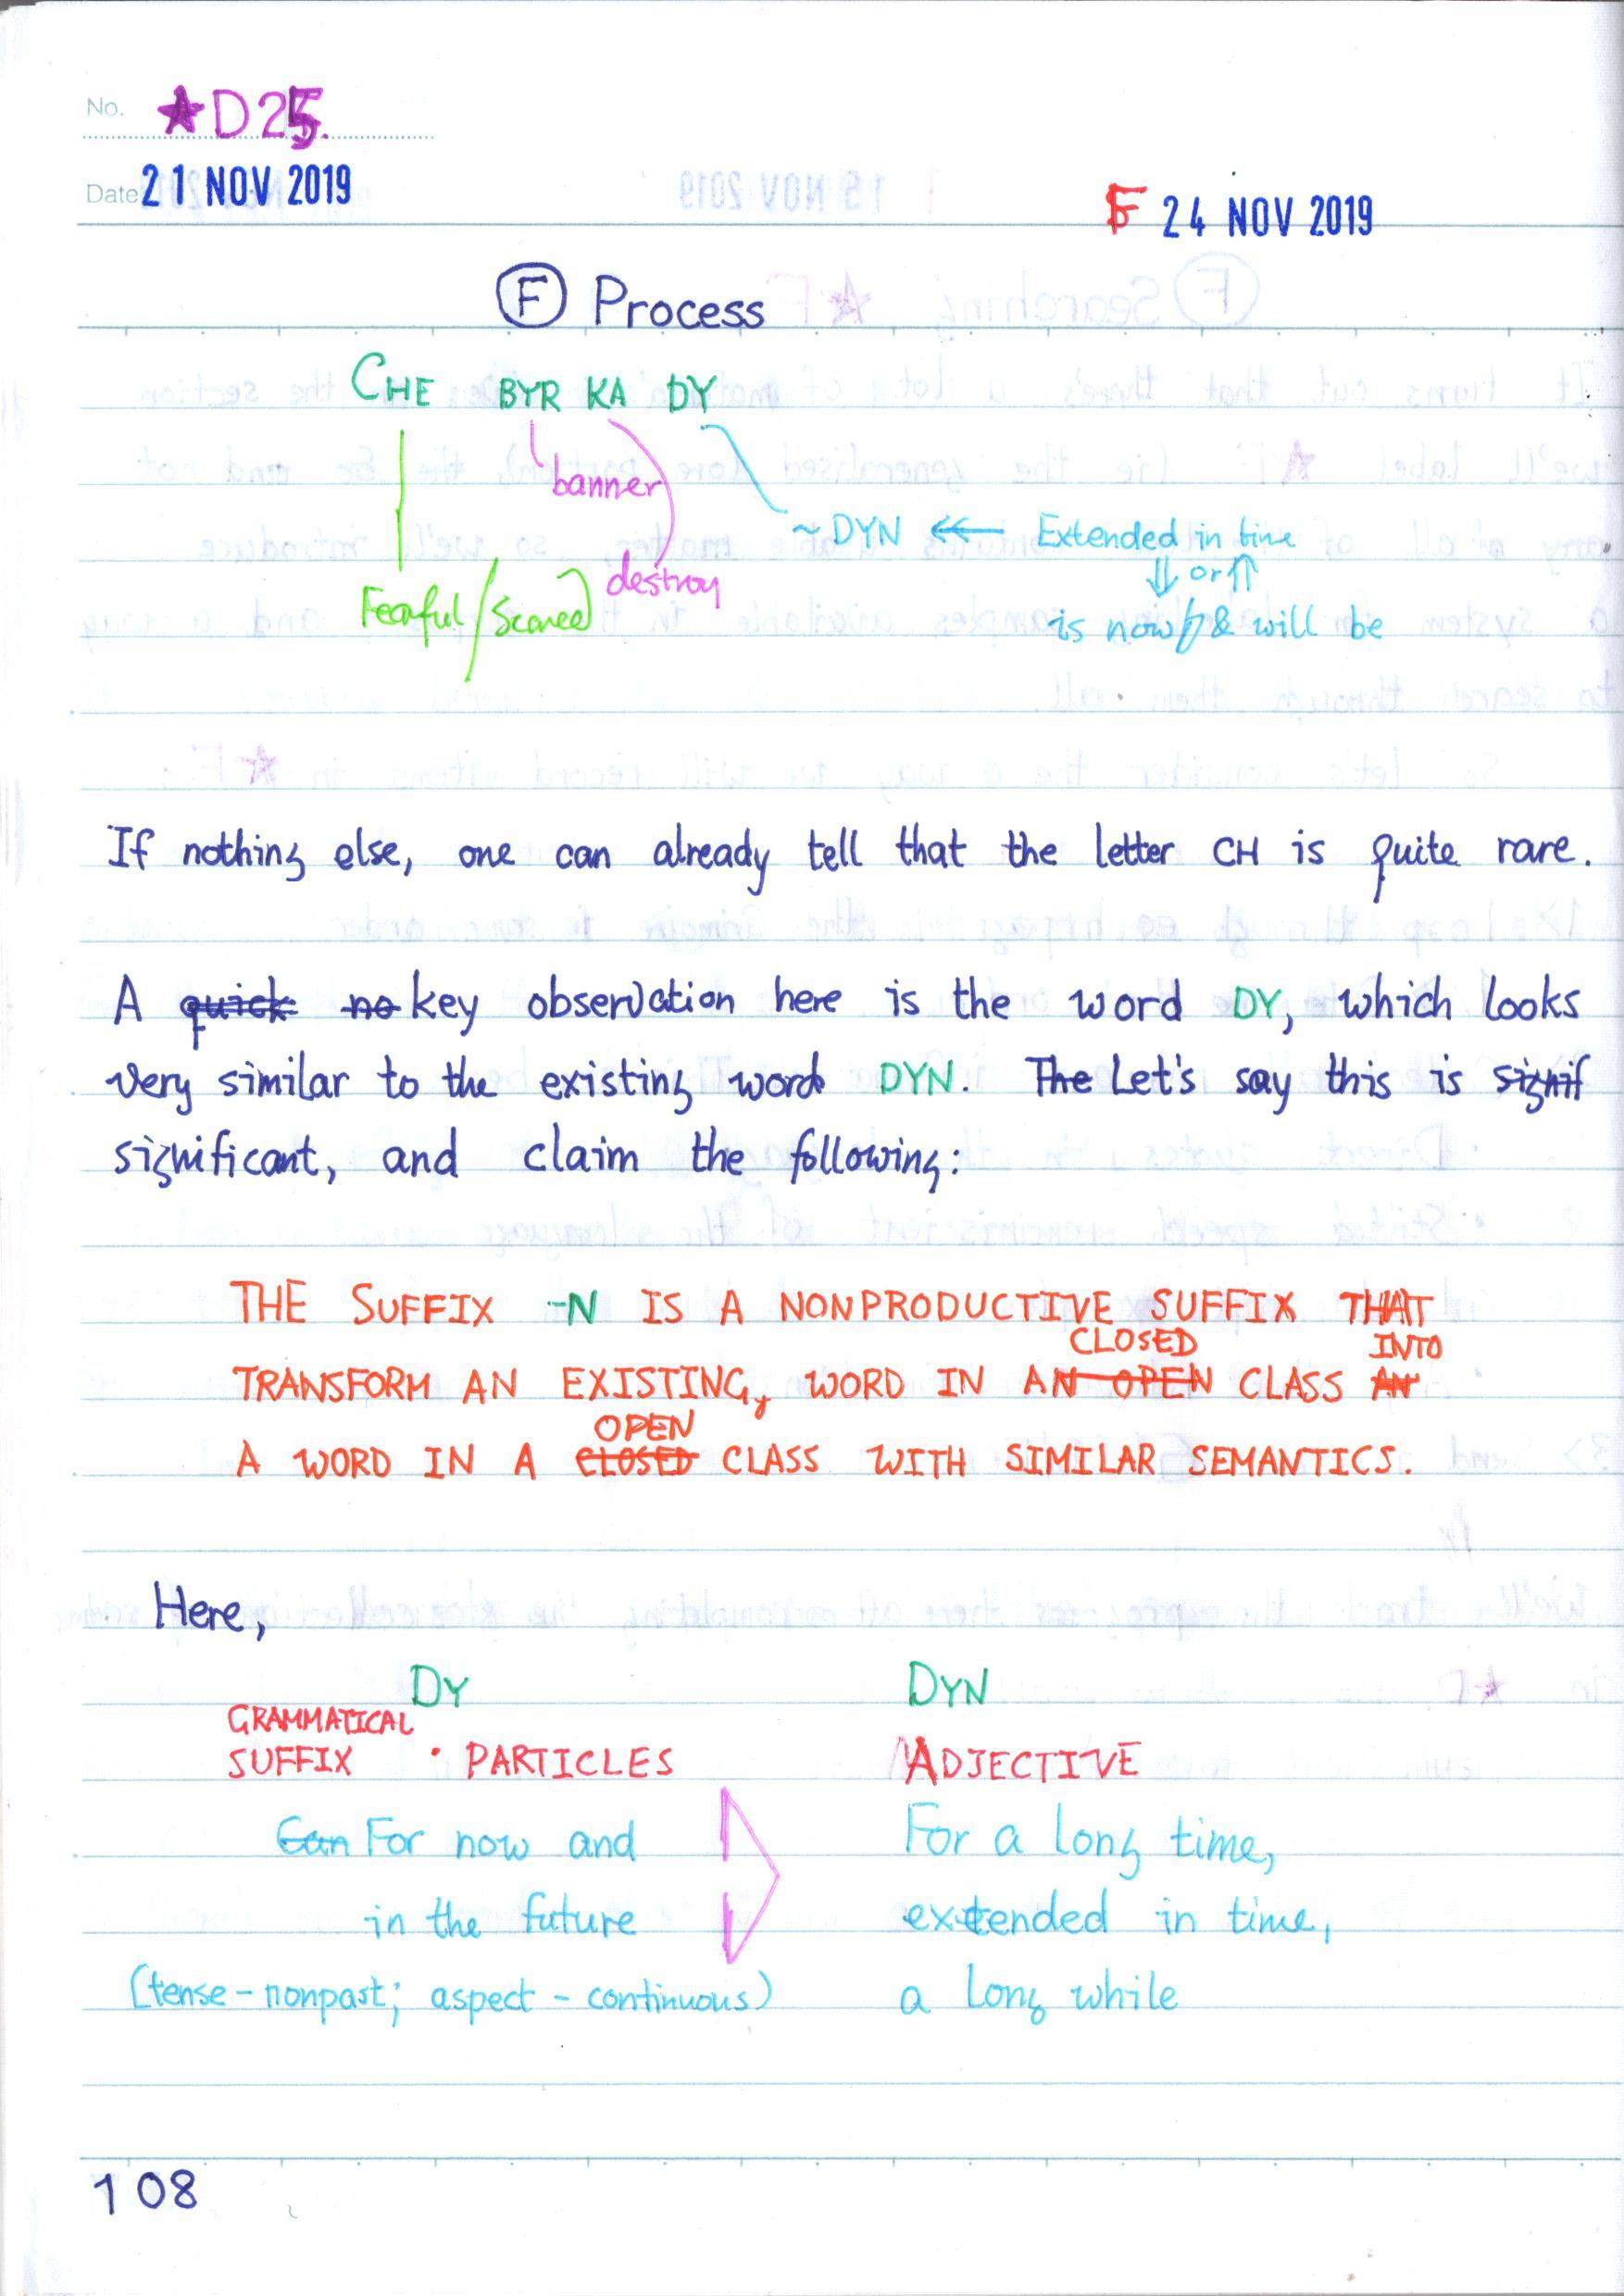 No. ★D25.
Date 21 NOV 2019
F 24 NOV 2019
Ⓕ Process
CHE BYR KA DY
banner
~DYN ⇐ Extended in time
destroy
⇓ or ⇑
Fearful / Scared
is now & will be
If nothing else, one can already tell that the letter CH is quite rare.
A quick no key observation here is the word DY, which looks
very similar to the existing word DYN. The Let's say this is signif
significant, and claim the following:
THE SUFFIX -N IS A NONPRODUCTIVE SUFFIX THAT
CLOSED INTO
TRANSFORM AN EXISTING, WORD IN AN OPEN CLASS AN
OPEN
A WORD IN A CLOSED CLASS WITH SIMILAR SEMANTICS.
Here,
DY DYN
GRAMMATICAL
SUFFIX · PARTICLES ADJECTIVE
Can For now and For a long time,
in the future extended in time,
(tense - nonpast; aspect - continuous) a long while
108